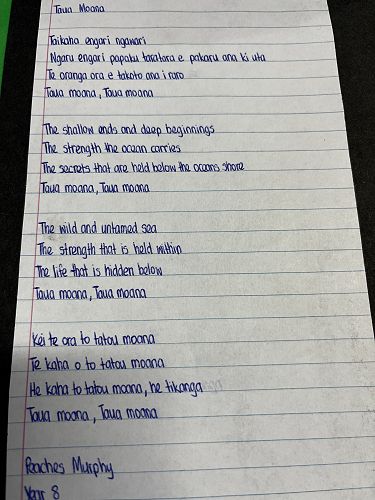 Taua Moana
Taikaha engari ngawari
Ngaru engari papaku taratara e pakaru ana ki uta
Te oranga ora e takoto ana i raro
Taua moana, Taua moana
The shallow ends and deep beginnings
The strength the ocean carries
The secrets that are held below the oceans shore
Taua moana, Taua moana
The wild and untamed sea
The strength that is held within
The life that is hidden below
Taua moana, Taua moana
Kei te ora to tatou moana
Te kaha o to tatou moana
He kaha to tatou moana, he tikanga
Taua moana, Taua moana
Peaches Murphy
Year 8